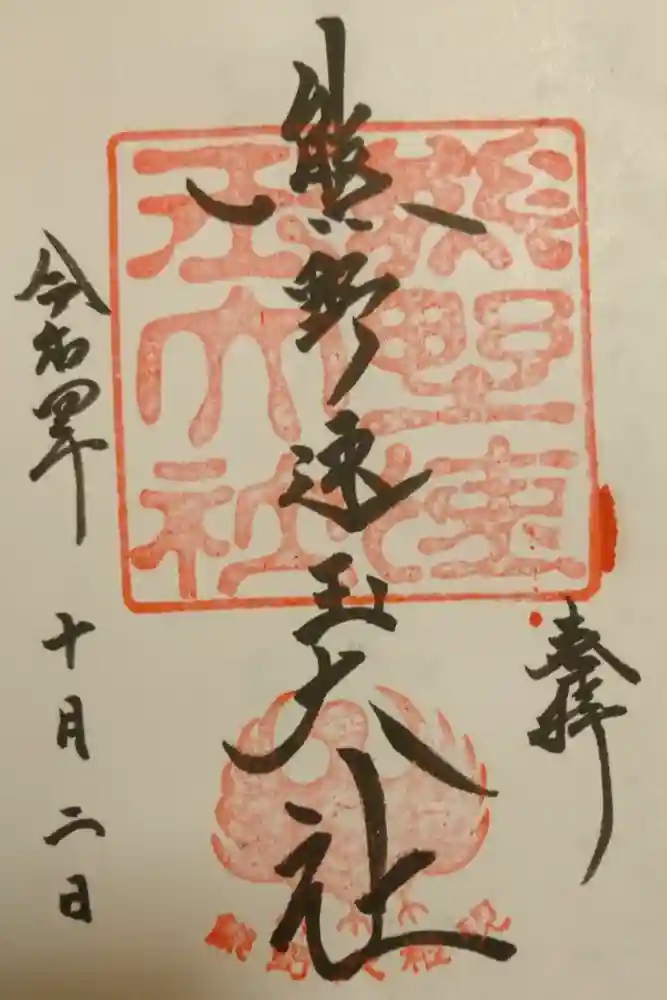 奉拝
熊野速玉大社
令和四年 十月二日
熊野速玉大社